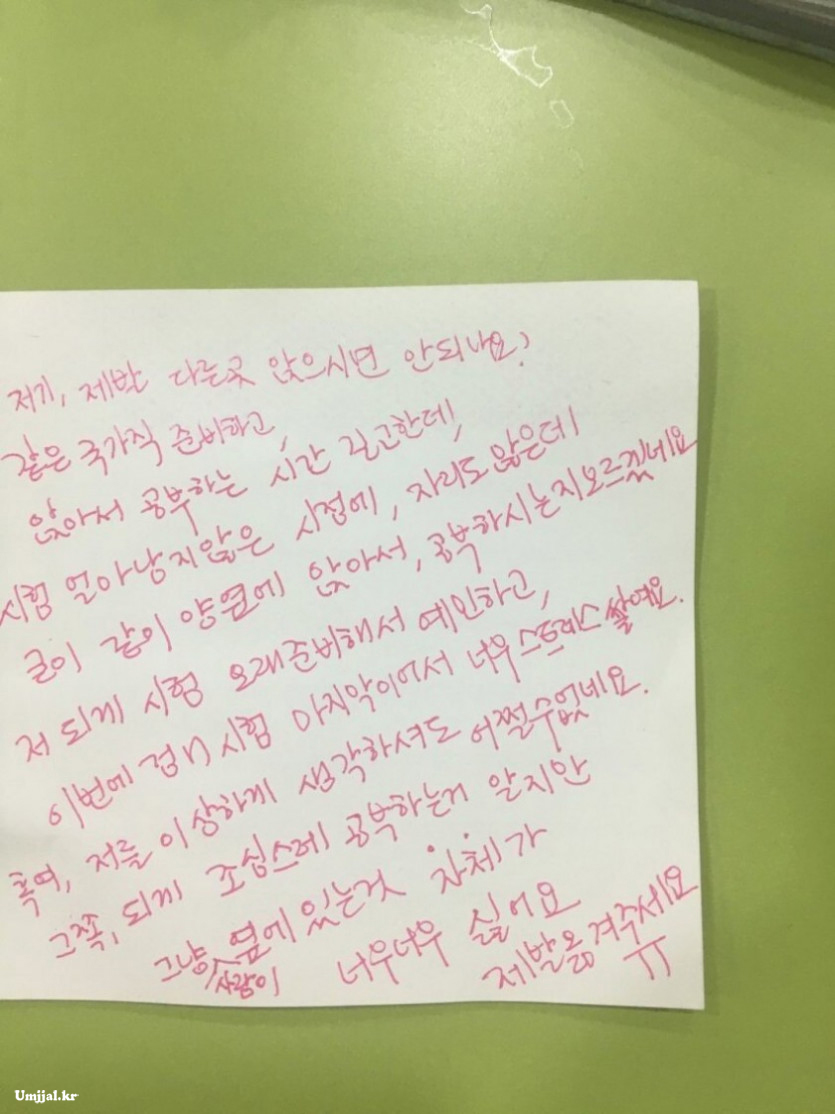 저기, 제발 다른곳 앉으시면 안되나요?
같은 국가직 준비하고,
앉아서 공부하는 시간 길고한데,
시험 얼마남지않은 시점에, 자리도 많은데
굳이 같이 양옆에 앉아서, 공부하시는지모르겠네요
저 되게 시험 오래준비해서 예민하고,
이번에 정n 시험 마지막이어서 너무 스트레스 쌓여요.
혹여, 저를 이상하게 생각하셔도 어쩔수없네요.
그쪽, 되게 조심스레 공부하는거 알지만
그냥 사람이 옆에 있는것 자체가
너무너무 싫어요
제발옮겨주세요
ㅠ
Umjjal.kr